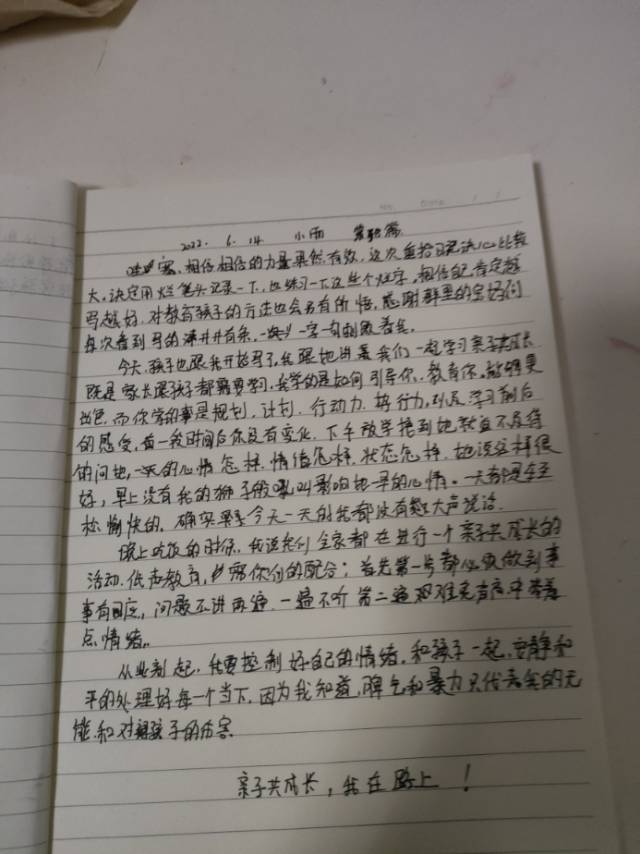 2022. 6. 14 小雨
相信相信的力量果然有效，这次重拾日记决心比较
大，决定用烂笔头记录一下，也练习一下这些个烂字，相信能肯定越
写越好，对教育孩子的方法也会另有所悟，感谢群里的宝妈们
每次看到写的满井井有条，一字一句刺激着我。
今天，孩子也跟我开始写了，我跟她讲着我们一起学习亲子共成长
既是家长跟孩子都需要学习，我学的是如何引导你，教育你，能够更
出色，而你学的事是规划，计划，行动力，执行力，以及学习前后
的感受，看一段时间后你没有变化。下午放学接到她就迫不及待
的问她，一天的心情怎样，情绪怎样，状态怎样，她说这样很
好，早上没有我的狮子般吼叫影响她一早的心情。一天都是轻
松愉快的，确实果真今天一天的我都没有敢大声说话
晚上吃饭的时候，我说我们全家都在进行一个亲子共成长的
活动，低声教育，需你们的配合；首先第一步都必须做到事
事有回应，问最不讲两遍，一遍不听第二遍难免声高中带着
点情绪。
从此刻起，我要控制好自己的情绪，和孩子一起，安静和
平的处理好每一个当下，因为我知道，脾气和暴力只代表我的无
能和对孩子的伤害
亲子共成长，我在路上！